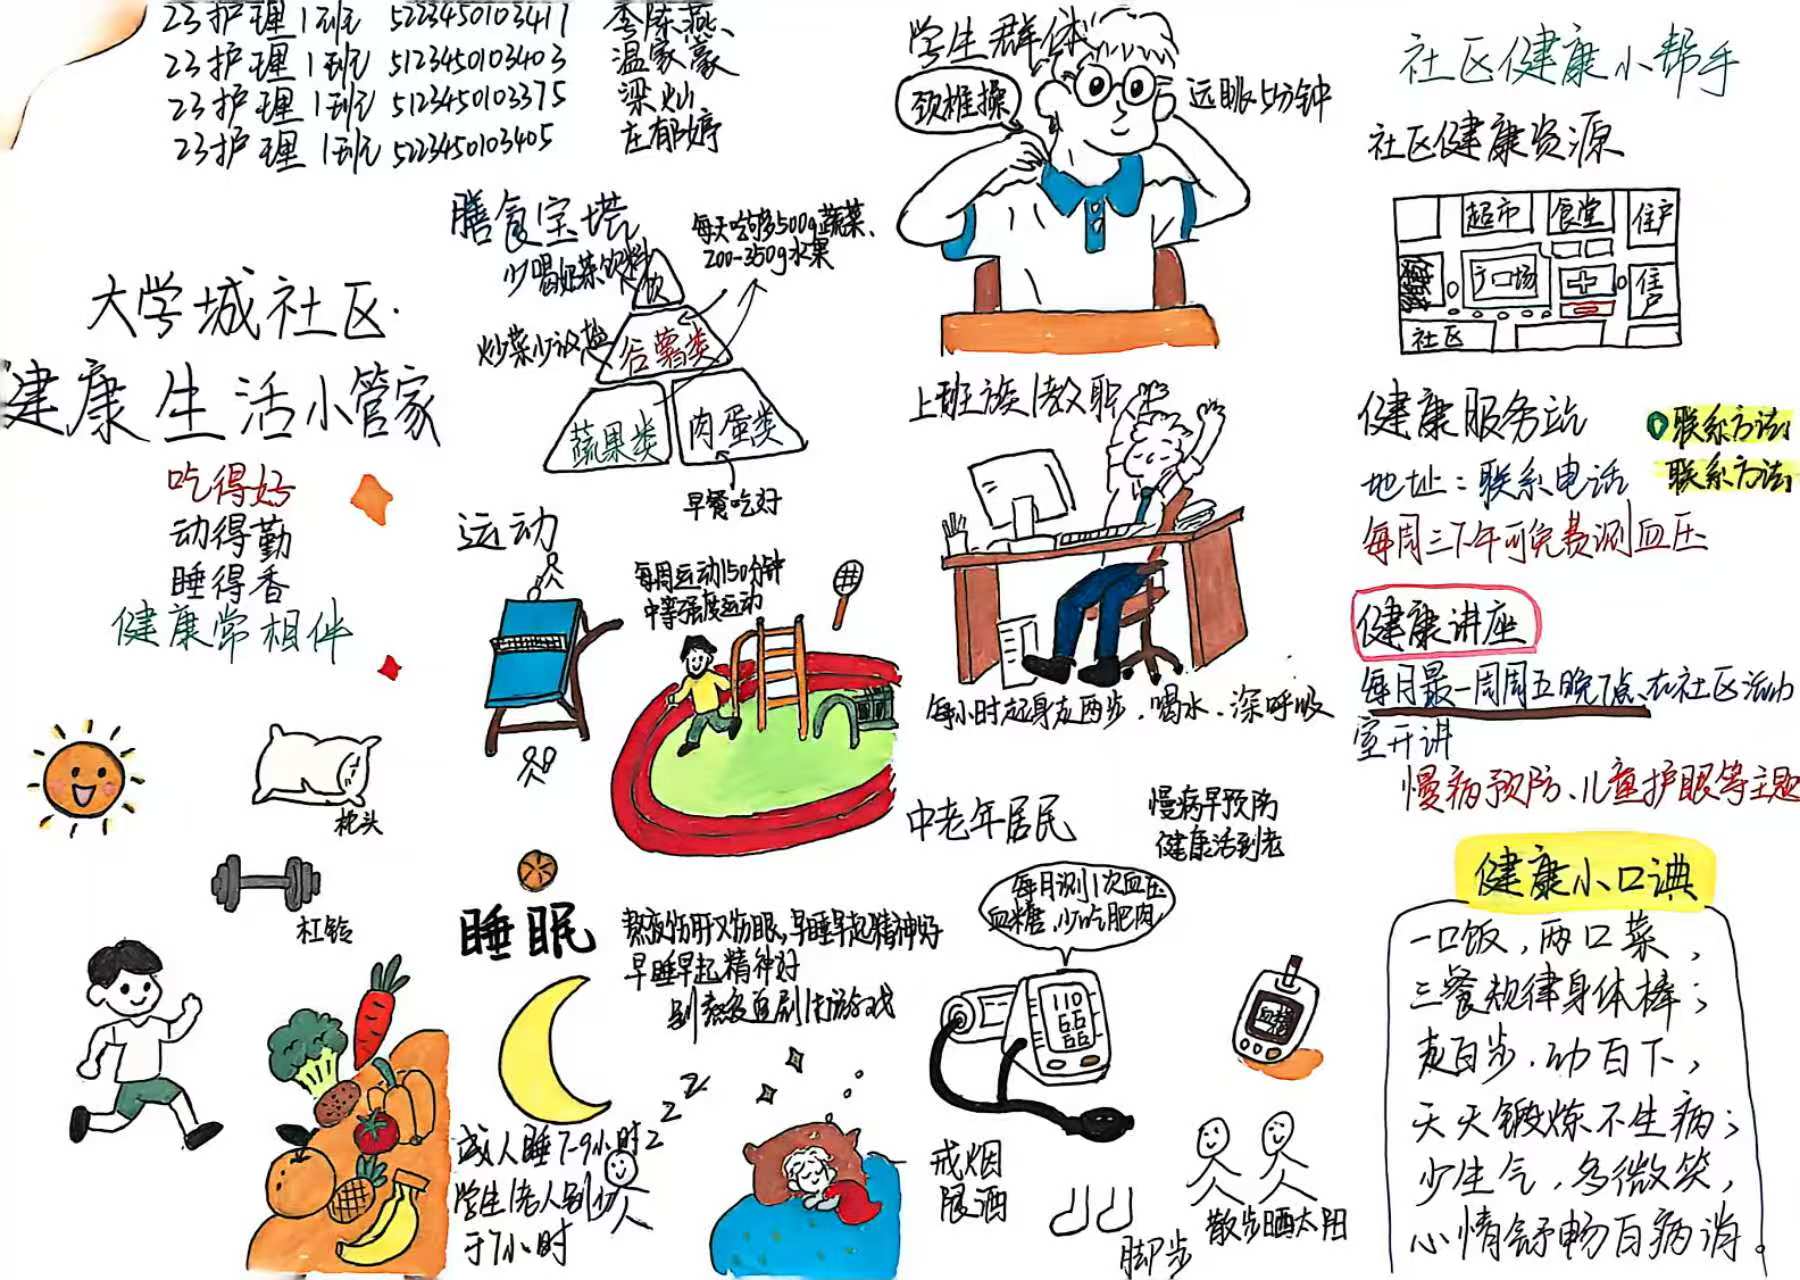 23护理1班 5223450103417 李陈燕
23护理1班 5123450103403 温家豪
23护理1班 5123450103375 梁灿
23护理1班 5223450103405 庄郁婷
大学城社区
健康生活小管家
吃得好
动得勤
睡得香
健康常相伴
枕头
杠铃
膳食宝塔
少喝奶茶饮料
每天吃够500g蔬菜、
200-350g水果
饮
炒菜少放盐
谷薯类
蔬果类
肉蛋类
早餐吃好
运动
每周运动150分钟
中等强度运动
睡眠
熬夜伤肝又伤眼,早睡早起精神好
早睡早起精神好
别熬夜追剧打游戏
成人睡7-9小时
zzz
学生/老人别少
于7小时
学生群体
颈椎操
远眺5分钟
上班族/教职
每小时起身走两步、喝水、深呼吸
中老年居民
慢病早预防
健康活到老
每月测1次血压
血糖,少吃肥肉
110
66
66
血糖
戒烟
限酒
脚步
散步晒太阳
社区健康小帮手
社区健康资源
超市
食堂
住户
广场
住户
社区
健康服务站
联系方法
地址:联系电话
联系方法
每周三下午可免费测血压
健康讲座
每月最一周周五晚7点、在社区活动
室开讲
慢病预防、儿童护眼等主题
健康小口诀
一口饭,两口菜,
三餐规律身体棒;
走百步,动百下,
天天锻炼不生病;
少生气,多微笑,
心情舒畅百病消。